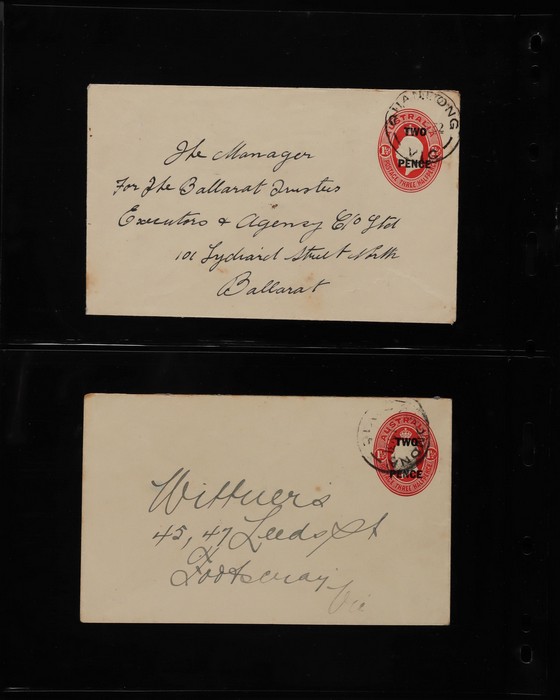 QUANTONG
VIC
AUSTRALIA
TWO
PENCE
POSTAGE THREE HALFPENCE
The Manager
For The Ballarat Trustees
Executors & Agency Co Ltd
101 Lydiard Street North
Ballarat
AUSTRALIA
TWO
PENCE
Wittner's
45, 47 Leeds St
Footscray
Vic